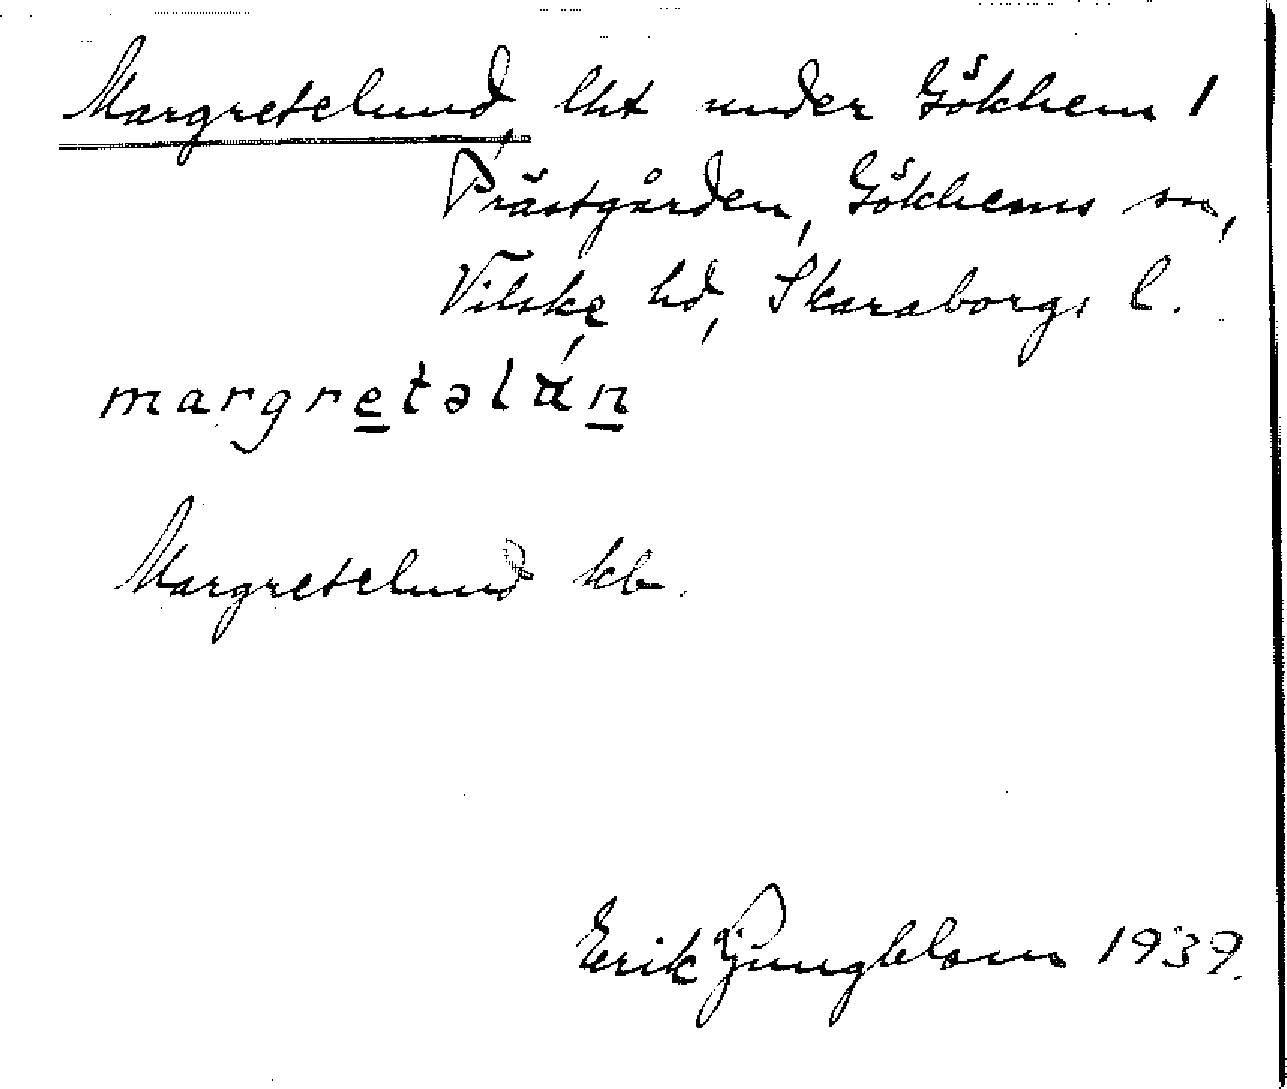 Margretelund, lht under Gökhem 1
Prästgården, Gökhems sn,
Vilske hd, Skaraborgs l.
margretəlán
Margretelund kb.
Erik Ljungblom 1939.